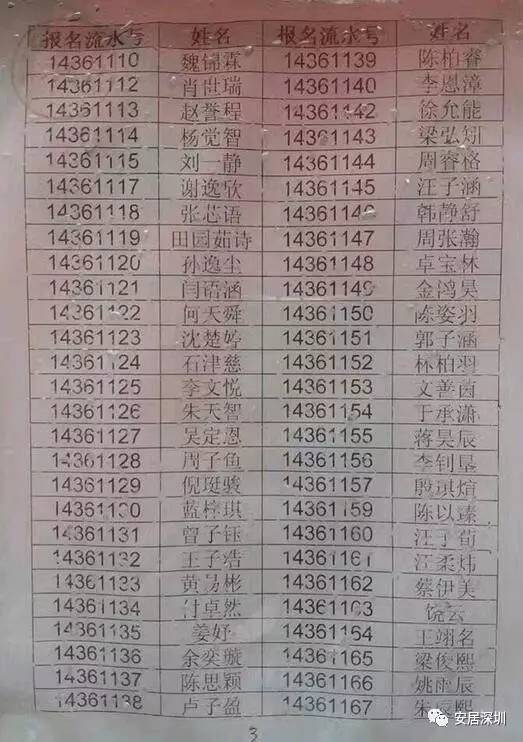 报名流水号 姓名 报名流水号 姓名
14361110 魏锦霖 14361139 陈柏睿
14361112 肖世瑞 14361140 李恩漳
14361113 赵誉程 14361142 徐允能
14361114 杨觉智 14361143 梁弘知
14361115 刘一静 14361144 周睿格
14361117 谢逸欣 14361145 汪子涵
14361118 张芯语 14361146 韩静舒
14361119 田园茹诗 14361147 周张瀚
14361120 孙逸尘 14361148 卓宝林
14361121 闫语涵 14361149 金鸿昊
14361122 何天舜 14361150 陈姿羽
14361123 沈楚婷 14361151 郭子涵
14361124 石津慈 14361152 林柏羽
14361125 李文悦 14361153 文善茵
14361126 朱天智 14361154 于承潇
14361127 吴定恩 14361155 蒋昊辰
14361128 周子鱼 14361156 李钊垦
14361129 倪珽骏 14361157 殷琪煊
14361130 蓝梓琪 14361159 陈以臻
14361131 曾子钰 14361160 汪子荀
14361132 王子浩 14361161 江柔炜
14361133 黄易彬 14361162 蔡伊美
14361134 付卓然 14361163 饶云
14361135 姜妤 14361164 王翊名
14361136 余奕璇 14361165 梁俊熙
14361137 陈思颖 14361166 姚雨辰
14361138 卢子盈 14361167 朱宸熙
3
安居深圳